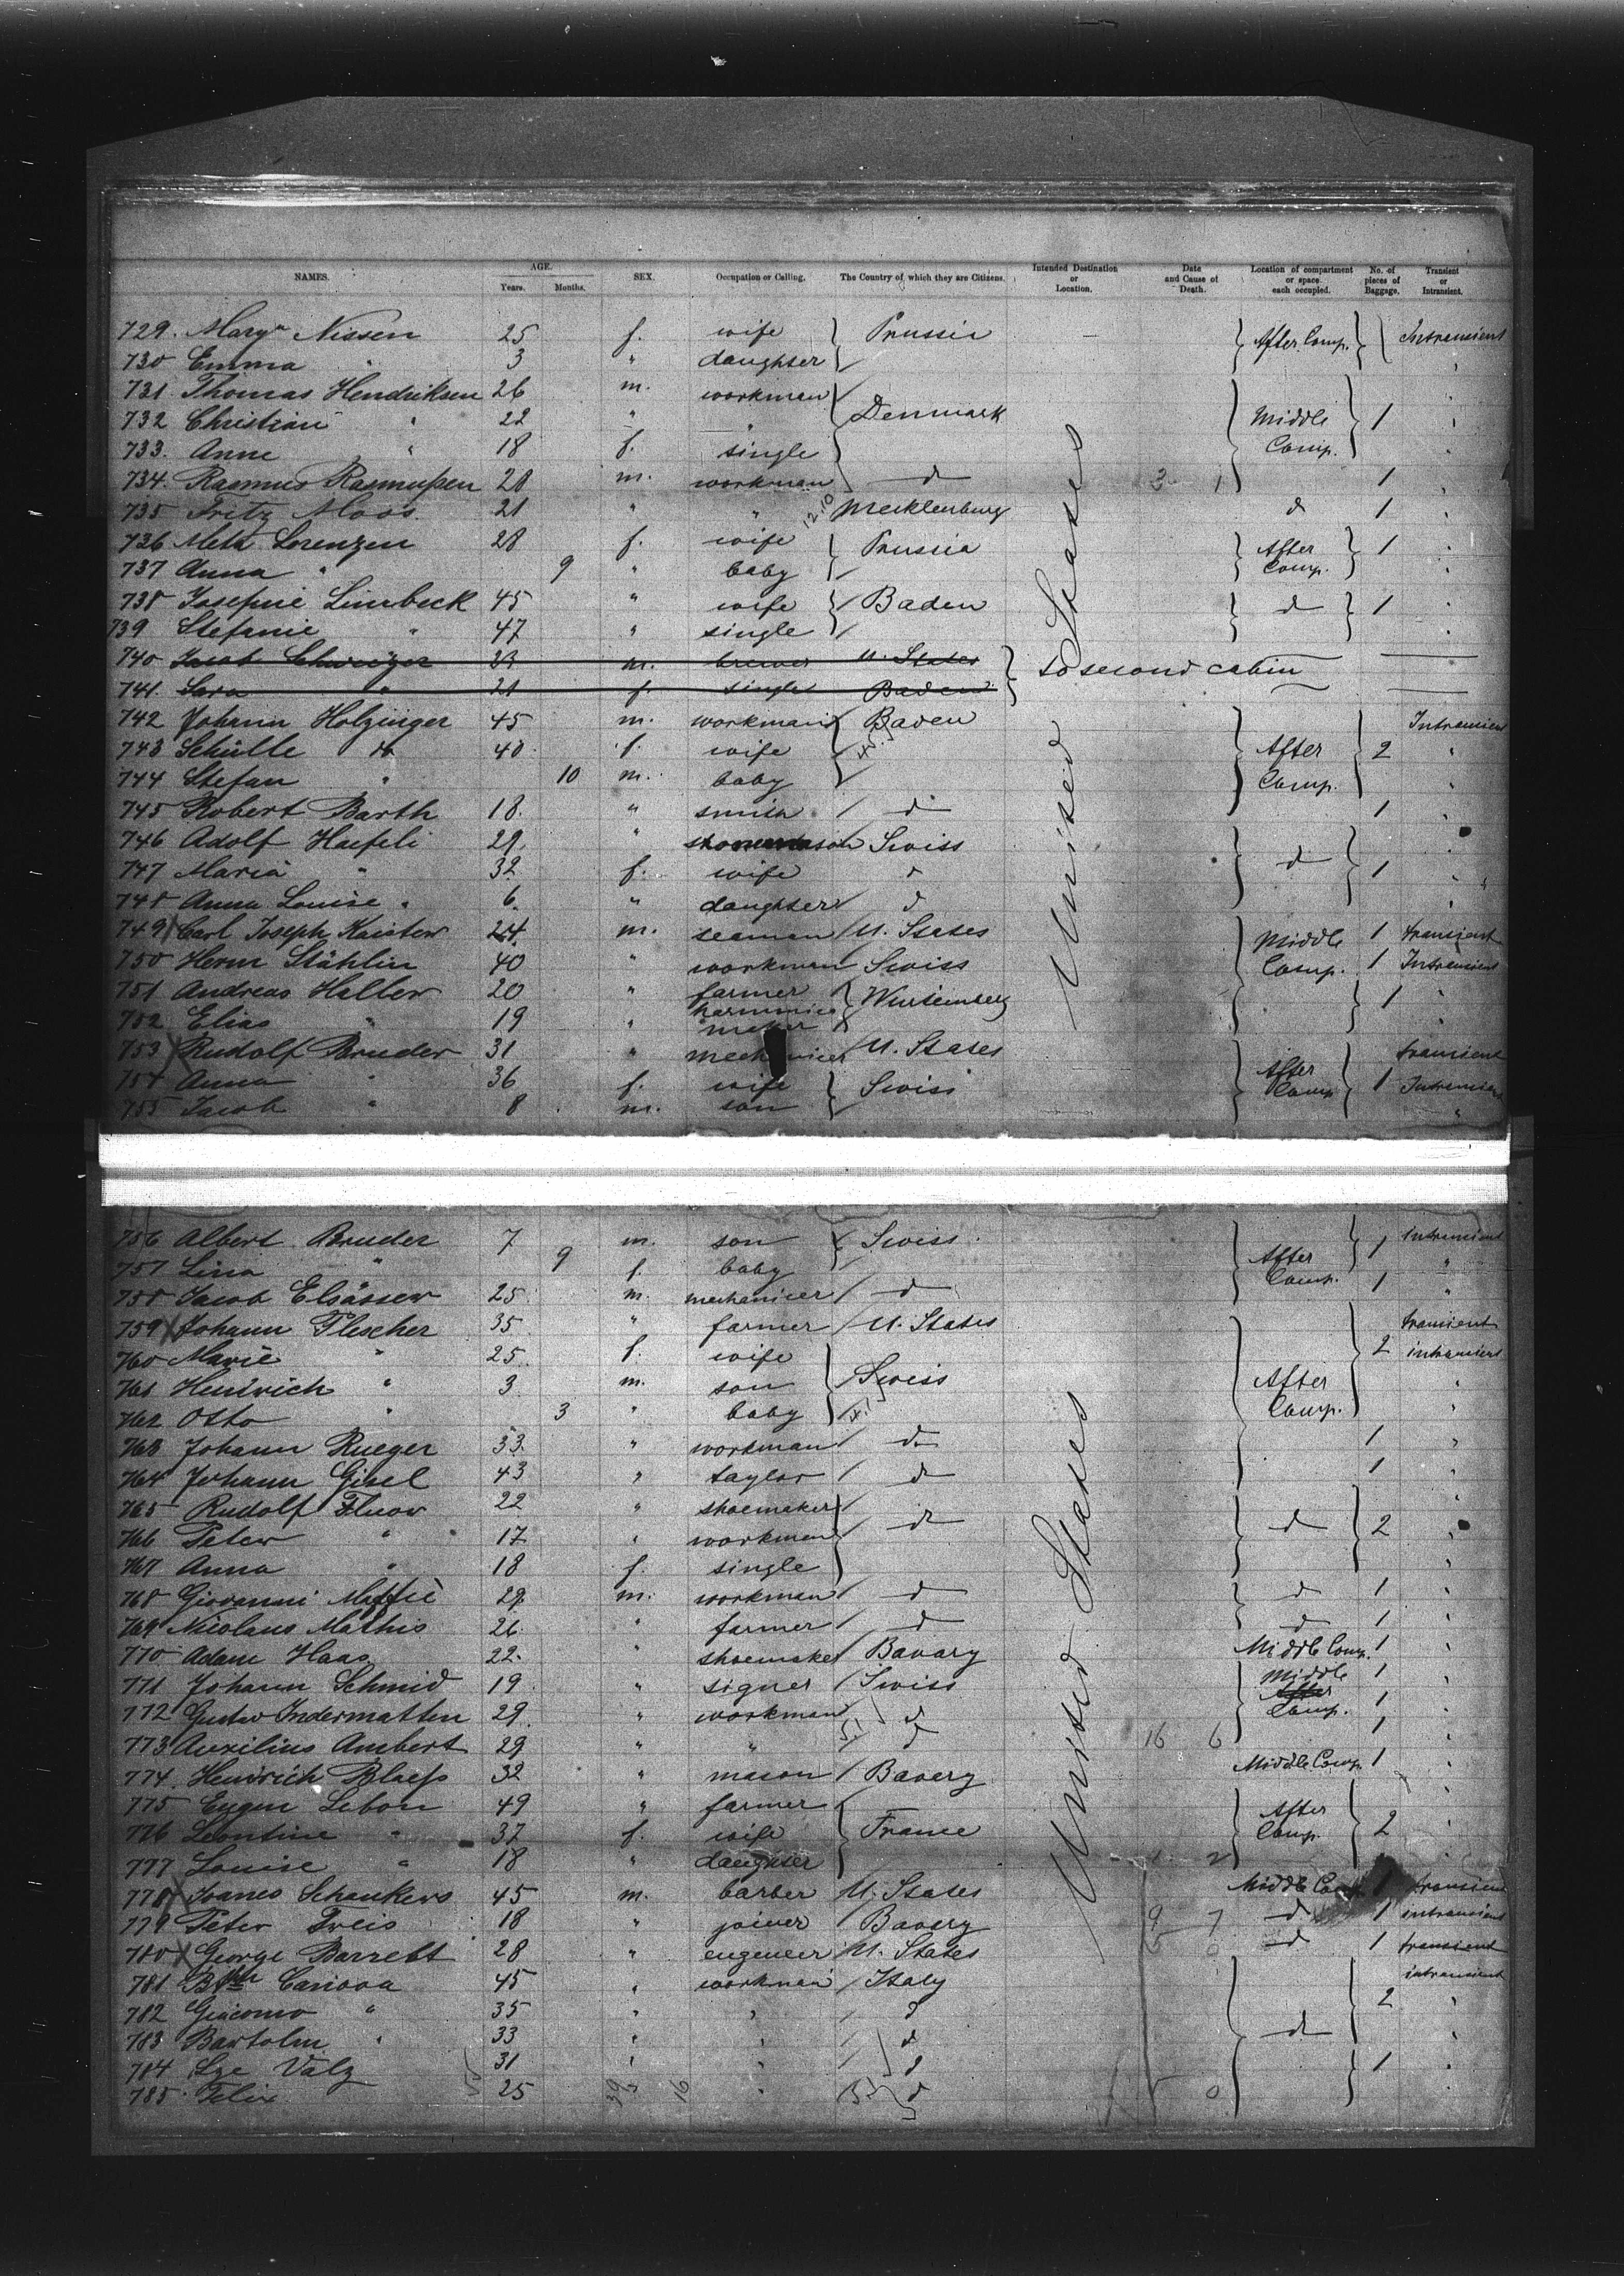 NAMES. AGE. Years. Months. SEX. Occupation or Calling. The Country of which they are Citizens. Intended Destination or Location. Date and Cause of Death. Location of compartment or space each occupied. No. of pieces of Baggage. Transient or Intransient.
729. Mary Nissen 25 f. wife Prussia After Comp. Intransient
730 Emma " 3 " daughter
731 Thomas Hendriksen 26 m. workman
732 Christian " 22 " " Denmark Middle Comp. 1
733. Anne " 18 f. single
734. Rasmus Rasmußen 28 m. workman d 3 1 1
735 Fritz Moos 21 " " 12.10 Mecklenburg d 1
736 Meta Lorenzen 28 f. wife Prussia After Comp. 1
737 Anna " 9 " baby
738 Josefine Limbeck 45 " wife Baden d 1
739 Stefanie " 47 " single
740 Jacob m. brewer U. States to second cabin
741. Sara " 21 f. single Baden
742 Johann Holzinger 45 m. workman Baden Intransient
743 40 f. wife After Comp. 2 "
744 Stefan " 10 m. baby
745 Robert Barth 18. " smith d 1
746 Adolf Haefeli 29. " stonemason Swiss
747 Maria " 32 f. wife d d 1
748 Anna Louise " 6 " daughter d
749 Carl Joseph 24 m. seaman U. States Middle Comp. 1 transient
750 Herm Stählin 40 " workman Swiss 1 Intransient
751 Andreas Haller 20 " farmer Wurtemberg 1 "
752 Elias " 19 " harmonica maker
753 Rudolf Bruder 31 " mechanicer U. States transient
754 Anna " 36 f. wife Swiss After Comp 1 Intransient
755 Jacob " 8 m. son "
United States
756 Albert Bruder 7 m. son Swiss After Comp. 1 Intransient
757 Lina " 9 f. baby "
758 Jacob Elsässer 25 m. mechanicer d 1 "
759 Johann Flescher 35 " farmer U. States transient
760 Marie " 25 f. wife 2 intransient
761 Heinrich " 3 m. son Swiss After Comp. "
762 Otto " 3 " baby "
763 Johann Rueger 33 " workman d 1 "
764 Johann Gisel 43 " taylor d 1 "
765 Rudolf 22 " shoemaker "
766 Peter " 17 " workman d d 2 "
767 Anna " 18 f. single "
768 Giovanni 29 m. workman d d 1 "
769 Nicolaus Mathis 26 " farmer d d 1 "
770 Adam Haas 22. " shoemaker Bavary Middle Comp. 1 "
771 Johann Schmid 19 " signer Swiss Middle After Comp. 1 "
772 Gustav Indermatten 29 " workman d 1 "
773 Auxilius Ambert 29 " " d 16 6 1 "
774. Heinrich Blaeß 32 " mason Bavery Middle Comp. 1 "
775 Eugen Lebon 49 " farmer After Comp. 2
776 Leontine " 37 f. wife France "
777 Louise " 18 " daughter
778 Schankers 45 m. barber U. States Middle Comp 1 transient
779 Peter Treis 18 " joiner Bavery 9 7 d 1 intransient
780 George Barrett 28 " engeneer U. States d 1 transient
781 45 " workman Italy intransient
782 Giacomo " 35 " " d 2 "
783 Bartolm " 33 " " d d "
784 Valz 31 " " d 1 "
785 Felix 25 " " d 0
United States